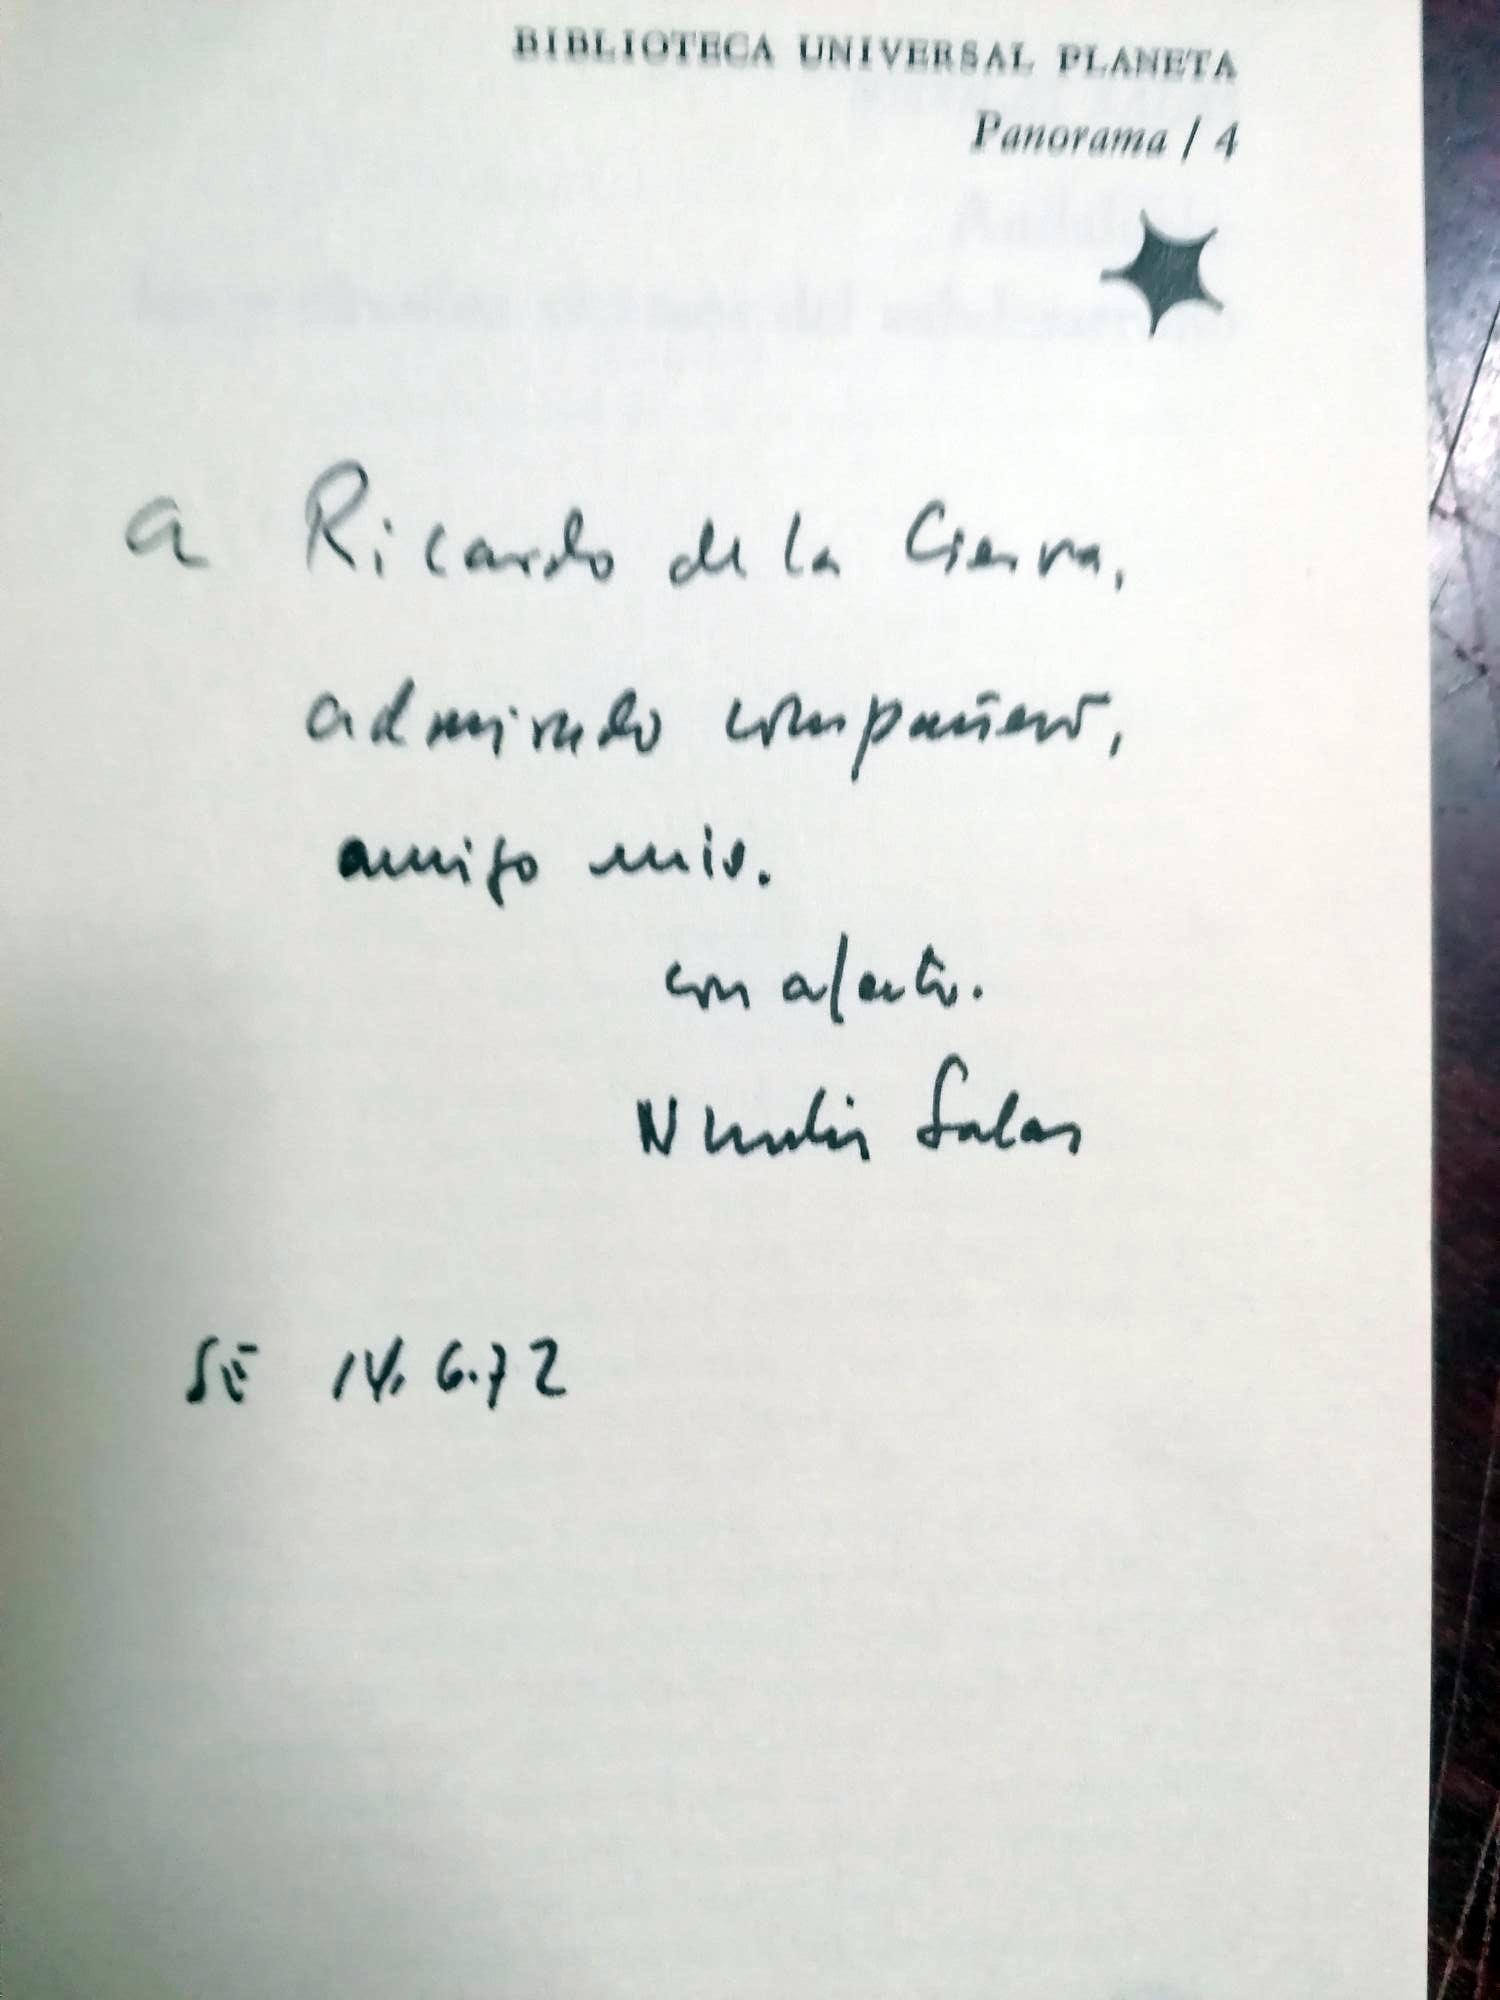 BIBLIOTECA UNIVERSAL PLANETA
Panorama / 4
a Ricardo de la Cierva,
admirado compañero,
amigo mio.
con afecto.
Nicolás Salas
SE 14.6.72